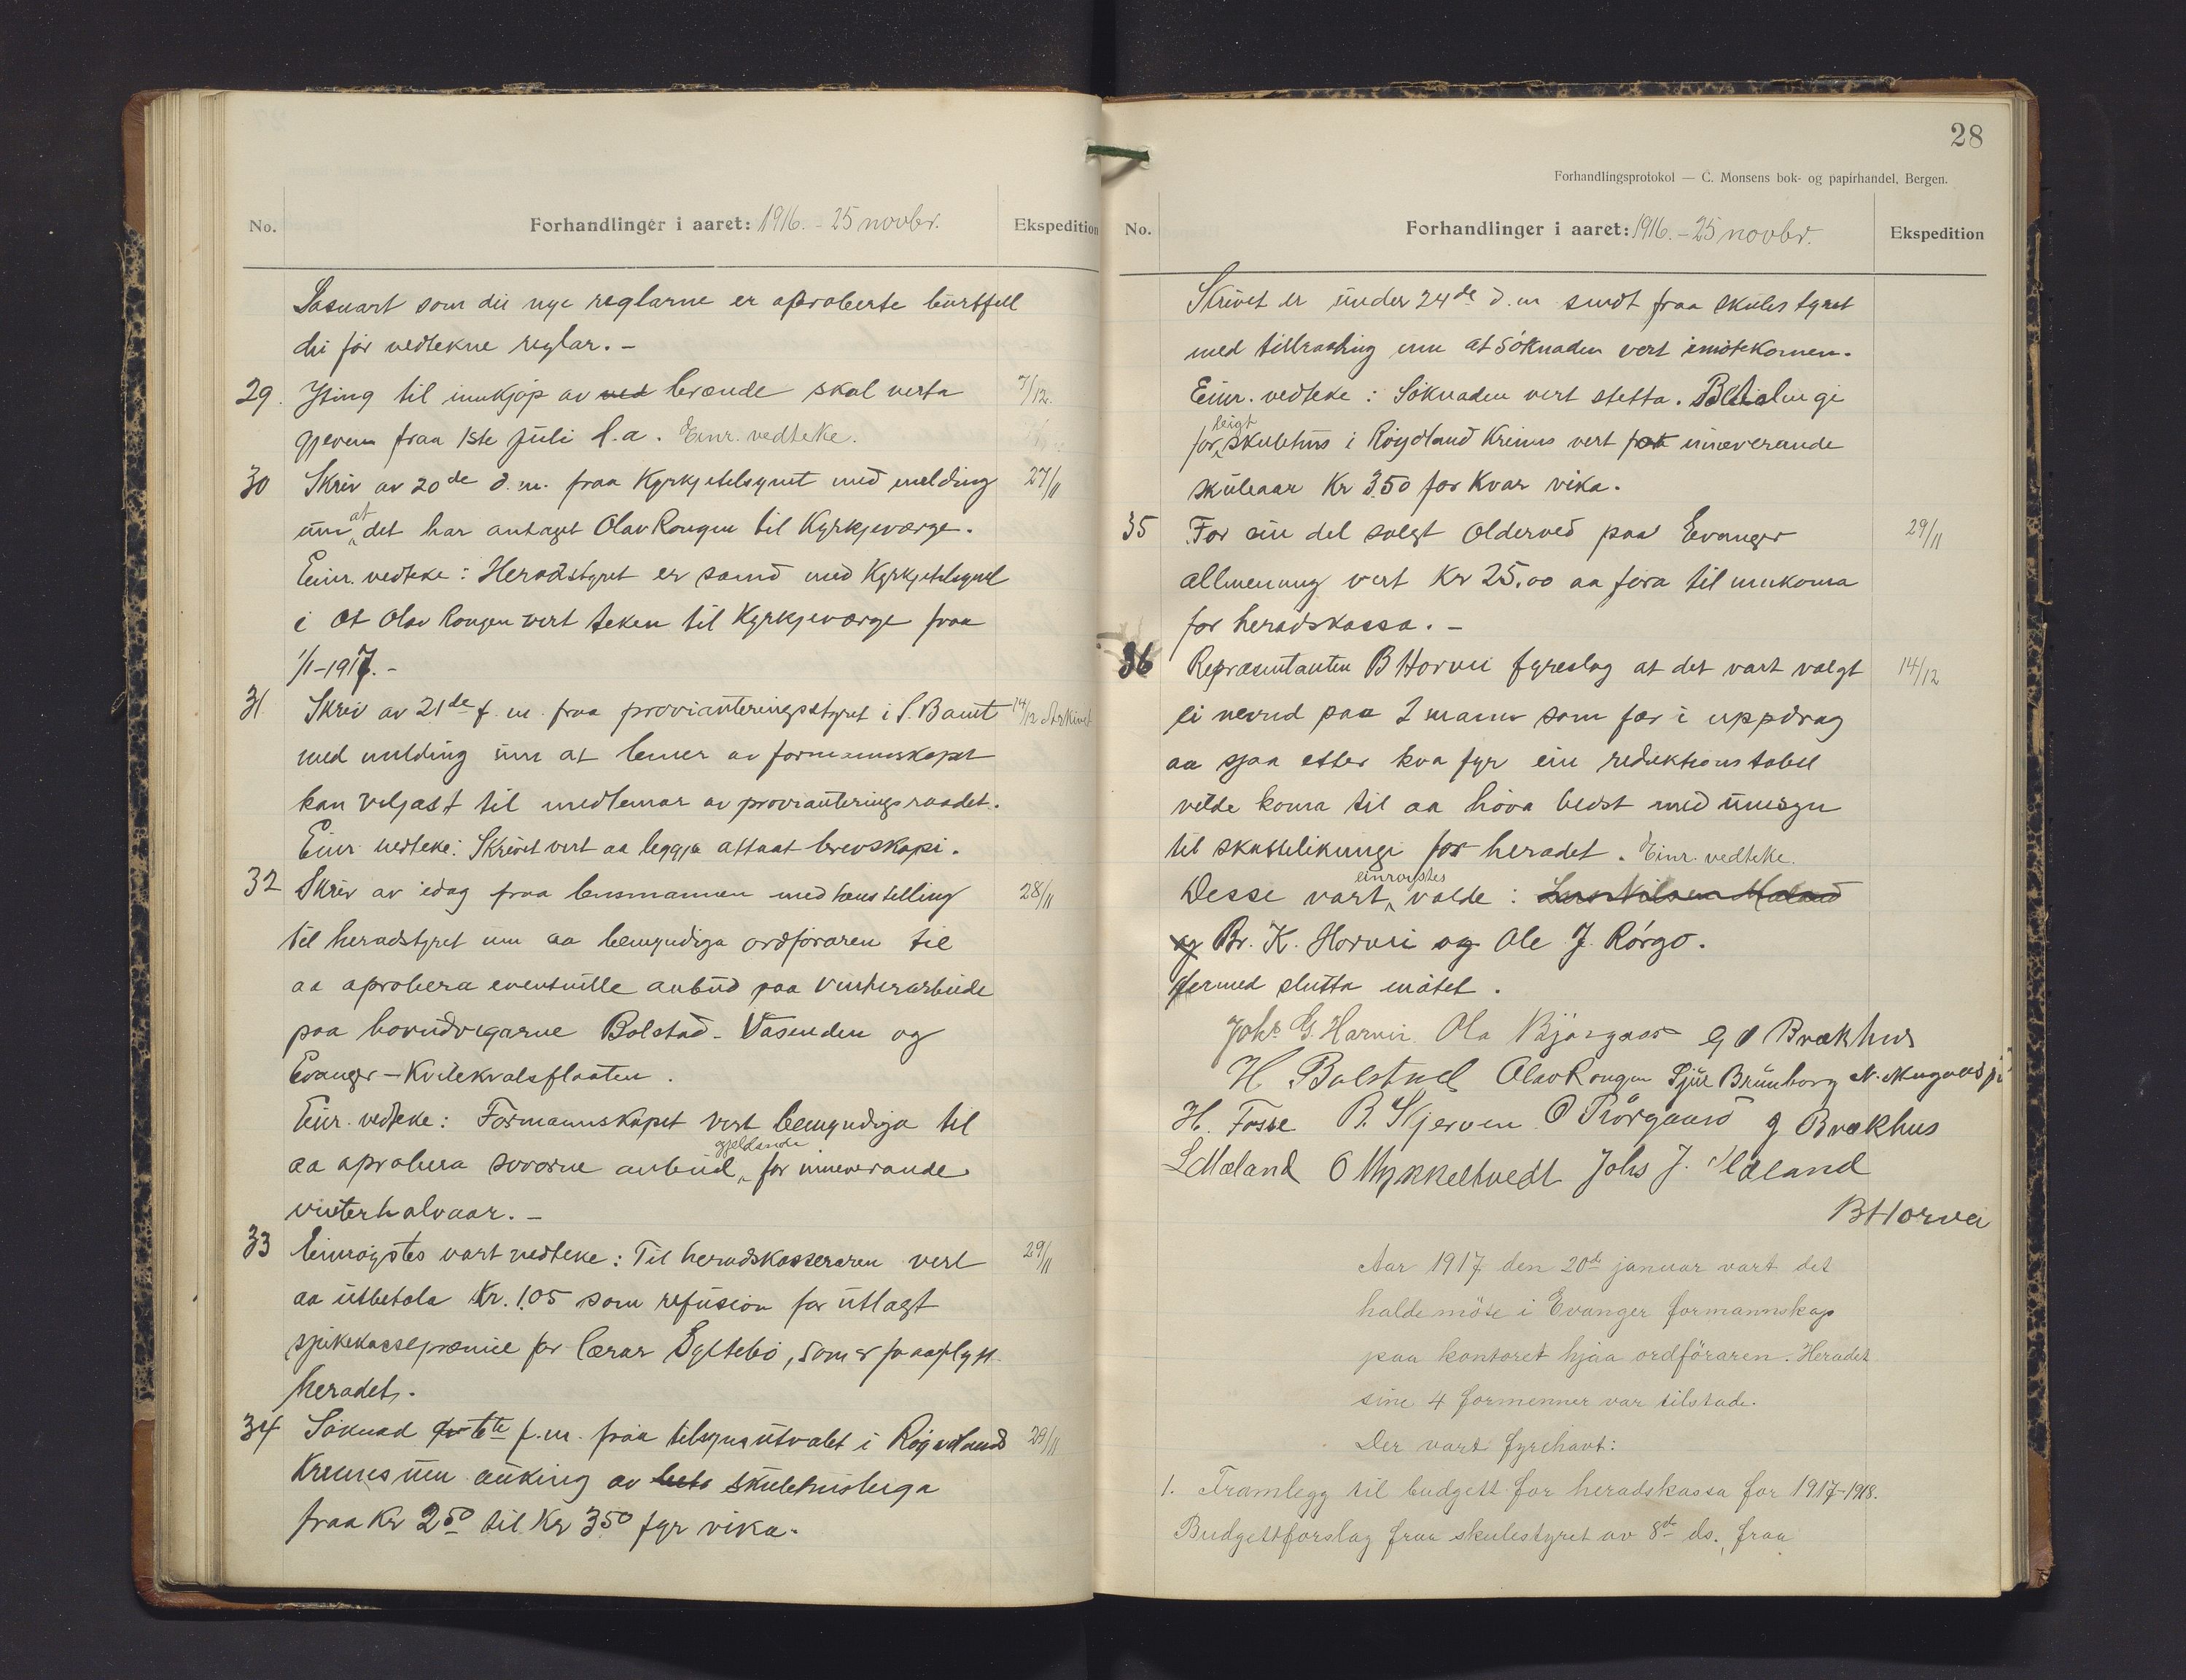 No. Forhandlinger i aaret: 1916. – 25 novbr. Ekspedition
Sosnart som dei nye reglarne er aproberte burtfell
dei før vedtekne reglar. –
29. Yting til innkjøp av ved brænde skal verta 7/12.
gjeven fraa 1ste juli l.a. Einr. vedteke.
30 Skriv av 20de d.m. fraa Kyrkjetilsynet med melding 27/11
um at det har antaget Olav Rongen til Kyrkjeværge.
Einr. vedteke: Heradstyret er samd med Kyrkjetilsynet
i at Olav Rongen vert teken til Kyrkjeværge fraa
1/1–1917. –
31 Skriv av 21de f.m. fraa provianteringsstyret i S. Bamt 14/12 Arkivet
med melding um at lemer av formannskapet
kan veljast til medlemar av provianteringsraadet.
Einr. vedteke: Skrivet vert aa leggja attaat brevskapi.
32 Skriv av idag fraa lensmannen med henstelling 28/11
til heradstyret um aa bemyndiga ordføraren til
aa aprobera eventuelle anbud paa vinterarbeide
paa hovudvegarne Bolstad – Vasenden og
Evanger – Kvilekvalsflaaten.
Einr. vedteke: Formannskapet vert bemyndiga til
aa aprobera sovorne anbud gjeldande for inneverande
vinterhalvaar. –
33 Einrøystes vart vedteke: Til heradskasseraren vert 29/11
aa utbetala Kr. 1.05 som refusion for utlagt
sjukekassepræmie for lærar Syltebø, som er fraaflytt
heradet.
34 Søknad av 6te f.m. fraa tilsynsutvalet i Røgdland 29/11
Kreins um auking av skulehusleiga
fraa Kr 2.50 til Kr 3.50 fyr vika.
28
Forhandlingsprotokol — C. Monsens bok- og papirhandel, Bergen.
No. Forhandlinger i aaret: 1916. – 25 novbr. Ekspedition
Skrivet er under 24de d.m sendt fraa skulestyret
med tilraading um at søknaden vert imøtekomen.
Einr. vedteke: Søknaden vert stetta. Betalingi
for leigt skulehus i Røydland Kreins vert for inneverande
skuleaar Kr 3.50 for kvar vika.
35 For ein del solgt olderved paa Evanger 29/11
allmenning vert Kr 25.00 aa føra til innkoma
for heradskassa. –
36 Repræsentanten B Horvei fyreslog at det vart valgt 14/12
ei nevnd paa 2 mann som fær i uppdrag
aa sjaa etter kva fyr ein reduktionstabell
vilde koma til aa høva bedst med umsyn
til skattelikningi for heradet. Einr. vedteke.
Desse vart einrøystes valde: Lars Nilsen Mæland
og Br. K. Horvei og Ole J. Rørgo.
Dermed slutta møtet.
Johs G. Horvei. Ola Bjørgaas G O Brækhus
H Bolstad Olav Rongen Sjur Brunborg N. Mugaas
H. Fosse B. Skjerven O Rørgaard G Brækhus
L Mæland O Mykkeltvedt Johs J. Mæland
B Horvei
Aar 1917 den 20de januar vart det
halde møte i Evanger formannskap
paa kontoret hjaa ordføraren. Heradet
sine 4 formenner var tilstade.
Der vart fyrehavt:
1. Framlegg til budgett for heradskassa for 1917–1918.
Budgettforslag fraa skulestyret av 8de ds., fraa